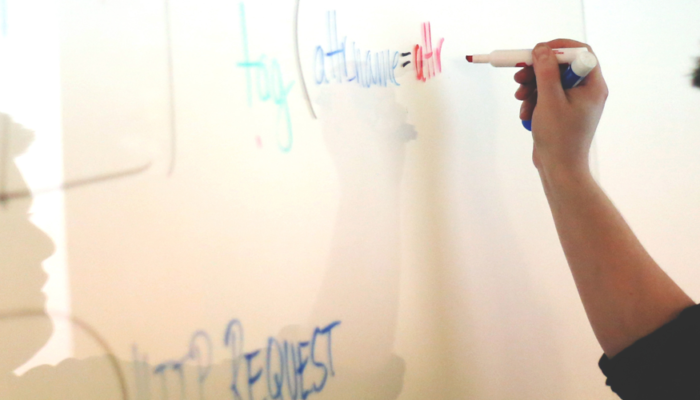 tag (attr.name=attr
HTTP REQUEST